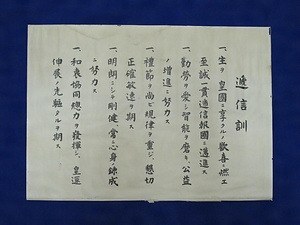 逓信訓
一、生ヲ 皇國ニ享クルノ歓喜ニ燃エ
至誠一貫通信報國ニ邁進ス
一、勤勞ヲ愛シ智能ヲ磨キ、公益
ノ増進ニ努力ス
一、禮節ヲ尚ビ規律ヲ重ジ、懇切
正確敏速ヲ期ス
一、明朗ニシテ剛健、常ニ心身ノ錬成
ニ努力ス
一、和衷協同總力ヲ發揮シ、皇運
伸展ノ先軀タルヲ期ス